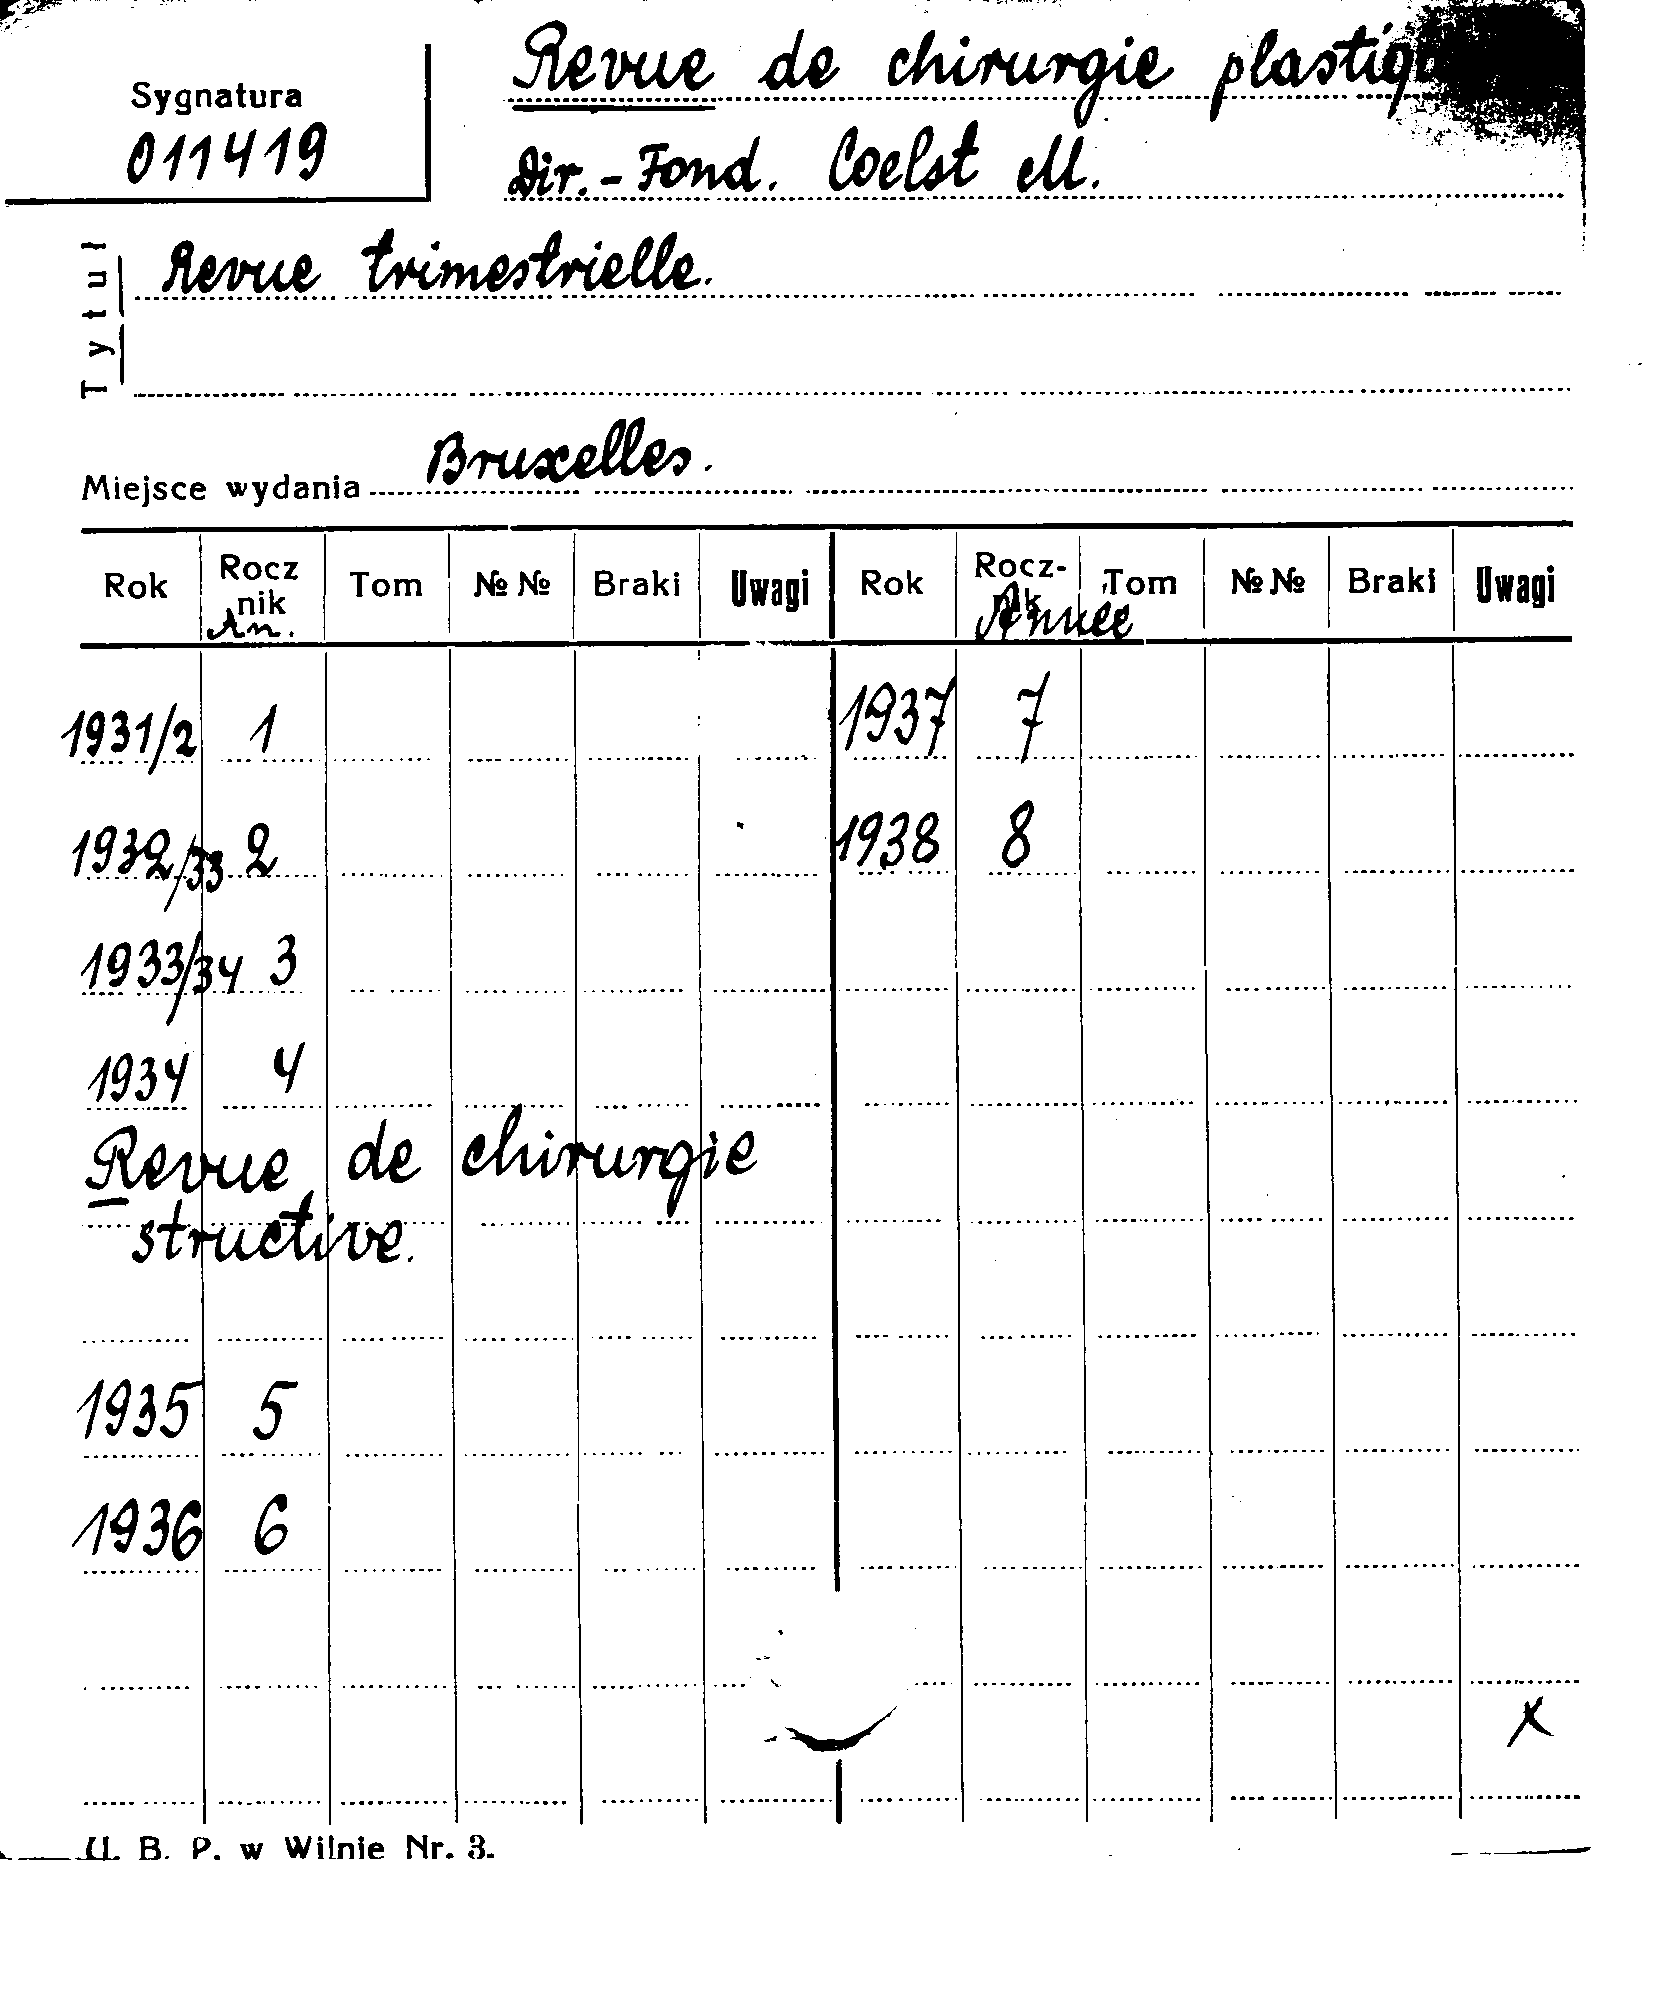 Revue de chirurgie plastiq
Sygnatura
011419
Dir.-Fond. Coelst M.
Tytuł
Revue trimestrielle.
Miejsce wydania Bruxelles.
Rok Rocz nik An. Tom № № Braki Uwagi Rok Rocz- nik Année Tom № № Braki Uwagi
1931/2 1 1937 7
1932/33 2 1938 8
1933/34 3
1934 4
Revue de chirurgie
structive.
1935 5
1936 6
x
U. B. P. w Wilnie Nr. 3.